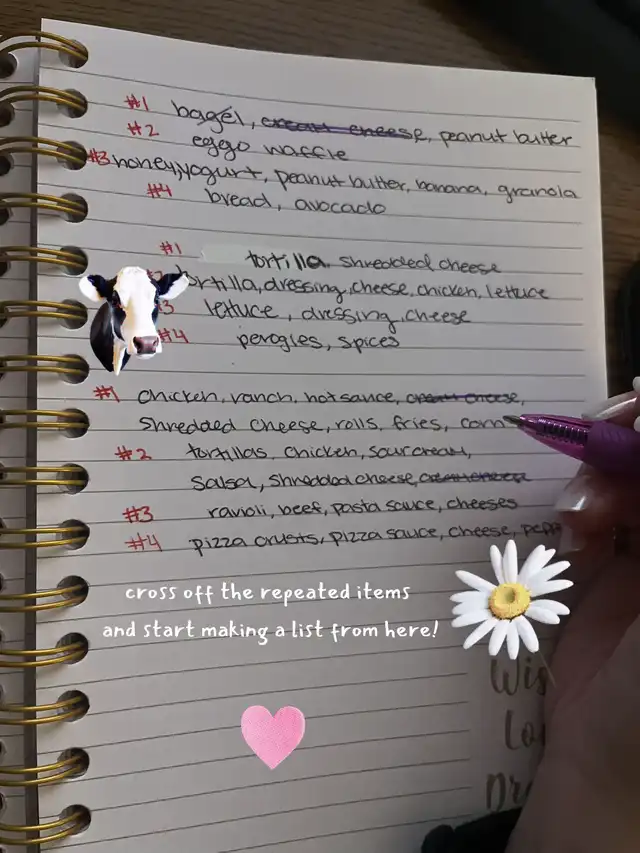 #1 bagel, cream cheese, peanut butter
#2 eggo waffle
#3 honey, yogurt, peanut butter, banana, granola
#4 bread, avocado
#1 tortilla, shredded cheese
tortilla, dressing, cheese, chicken, lettuce
3 lettuce, dressing, cheese
#4 perogies, spices
#1 chicken, ranch, hot sauce, cream cheese,
shredded cheese, rolls, fries, corn
#2 tortillas, chicken, sour cream,
salsa, shredded cheese, cream cheese
#3 ravioli, beef, pasta sauce, cheeses
#4 pizza crusts, pizza sauce, cheese, pepp
cross off the repeated items
and start making a list from here!
Wis
Lo
Dre